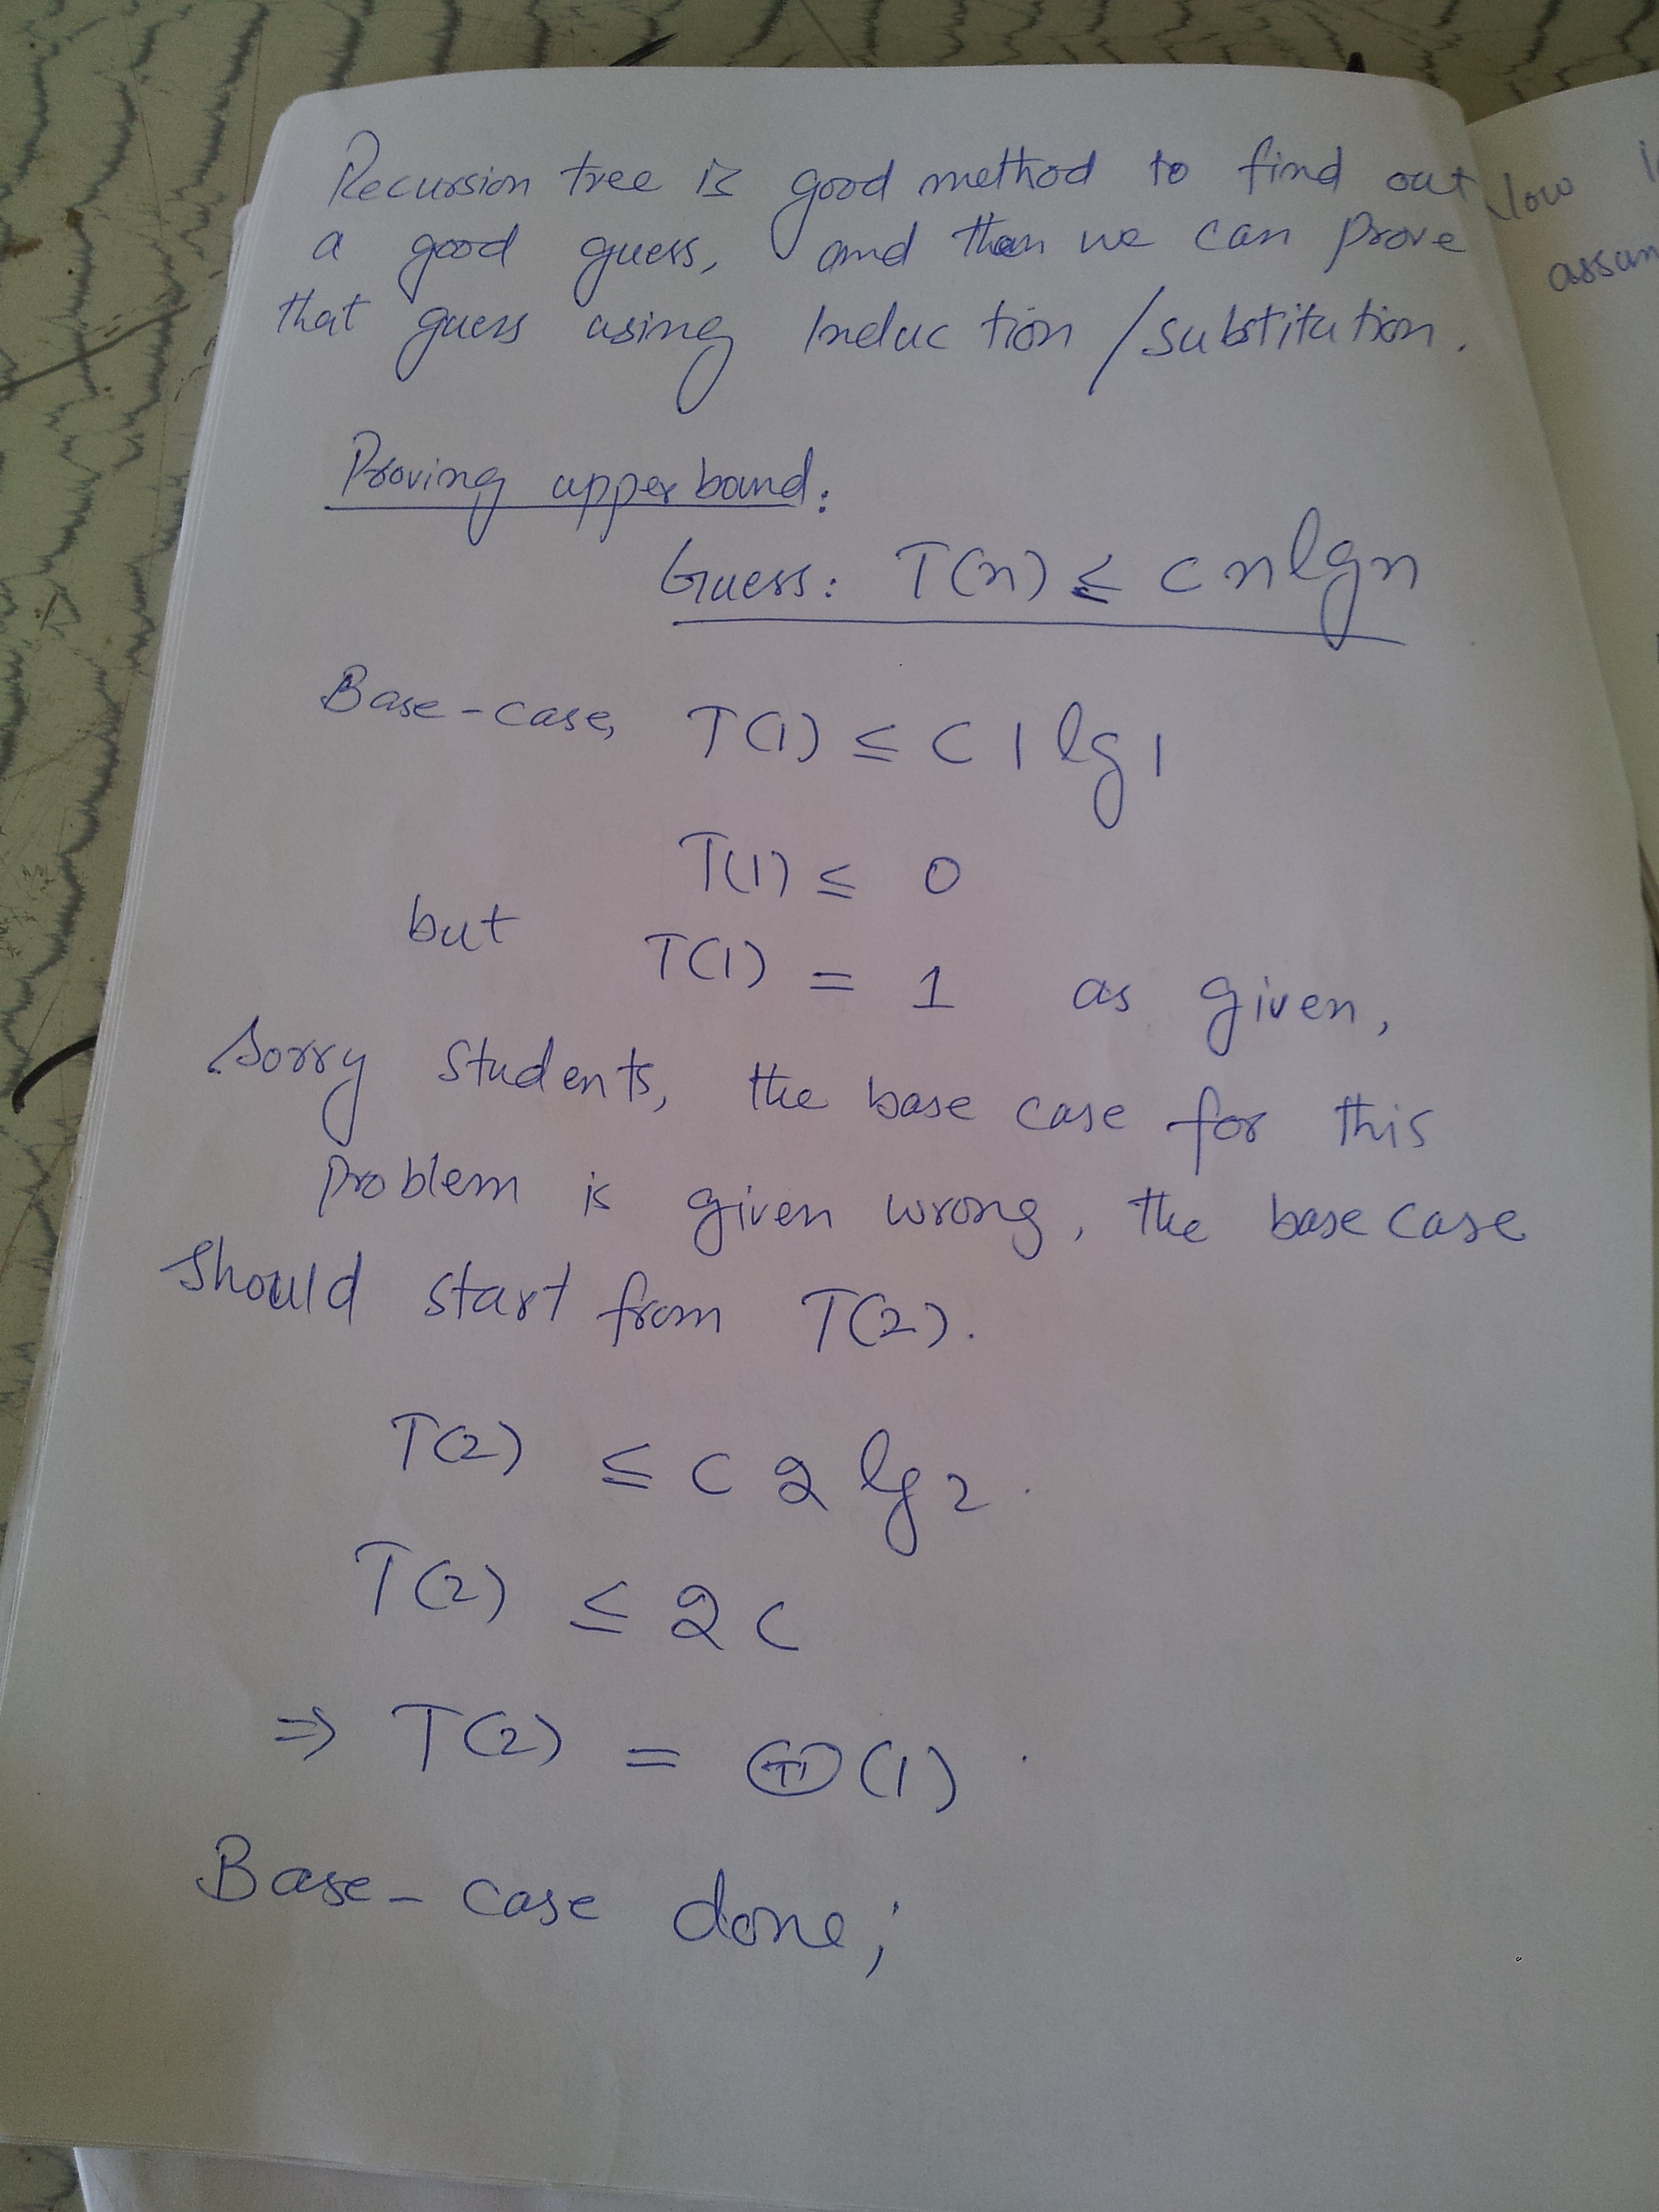 Recursion tree is good method to find out
a good guess, and then we can prove
that guess using Induction/substitution.
Proving upper bound:
Guess: T(n) ≤ c n lg n
Base-case, T(1) ≤ c 1 lg 1
T(1) ≤ 0
but T(1) = 1 as given,
Sorry students, the base case for this
problem is given wrong, the base case
should start from T(2).
T(2) ≤ c 2 lg 2.
T(2) ≤ 2 c
⇒ T(2) = Θ(1).
Base-case done;